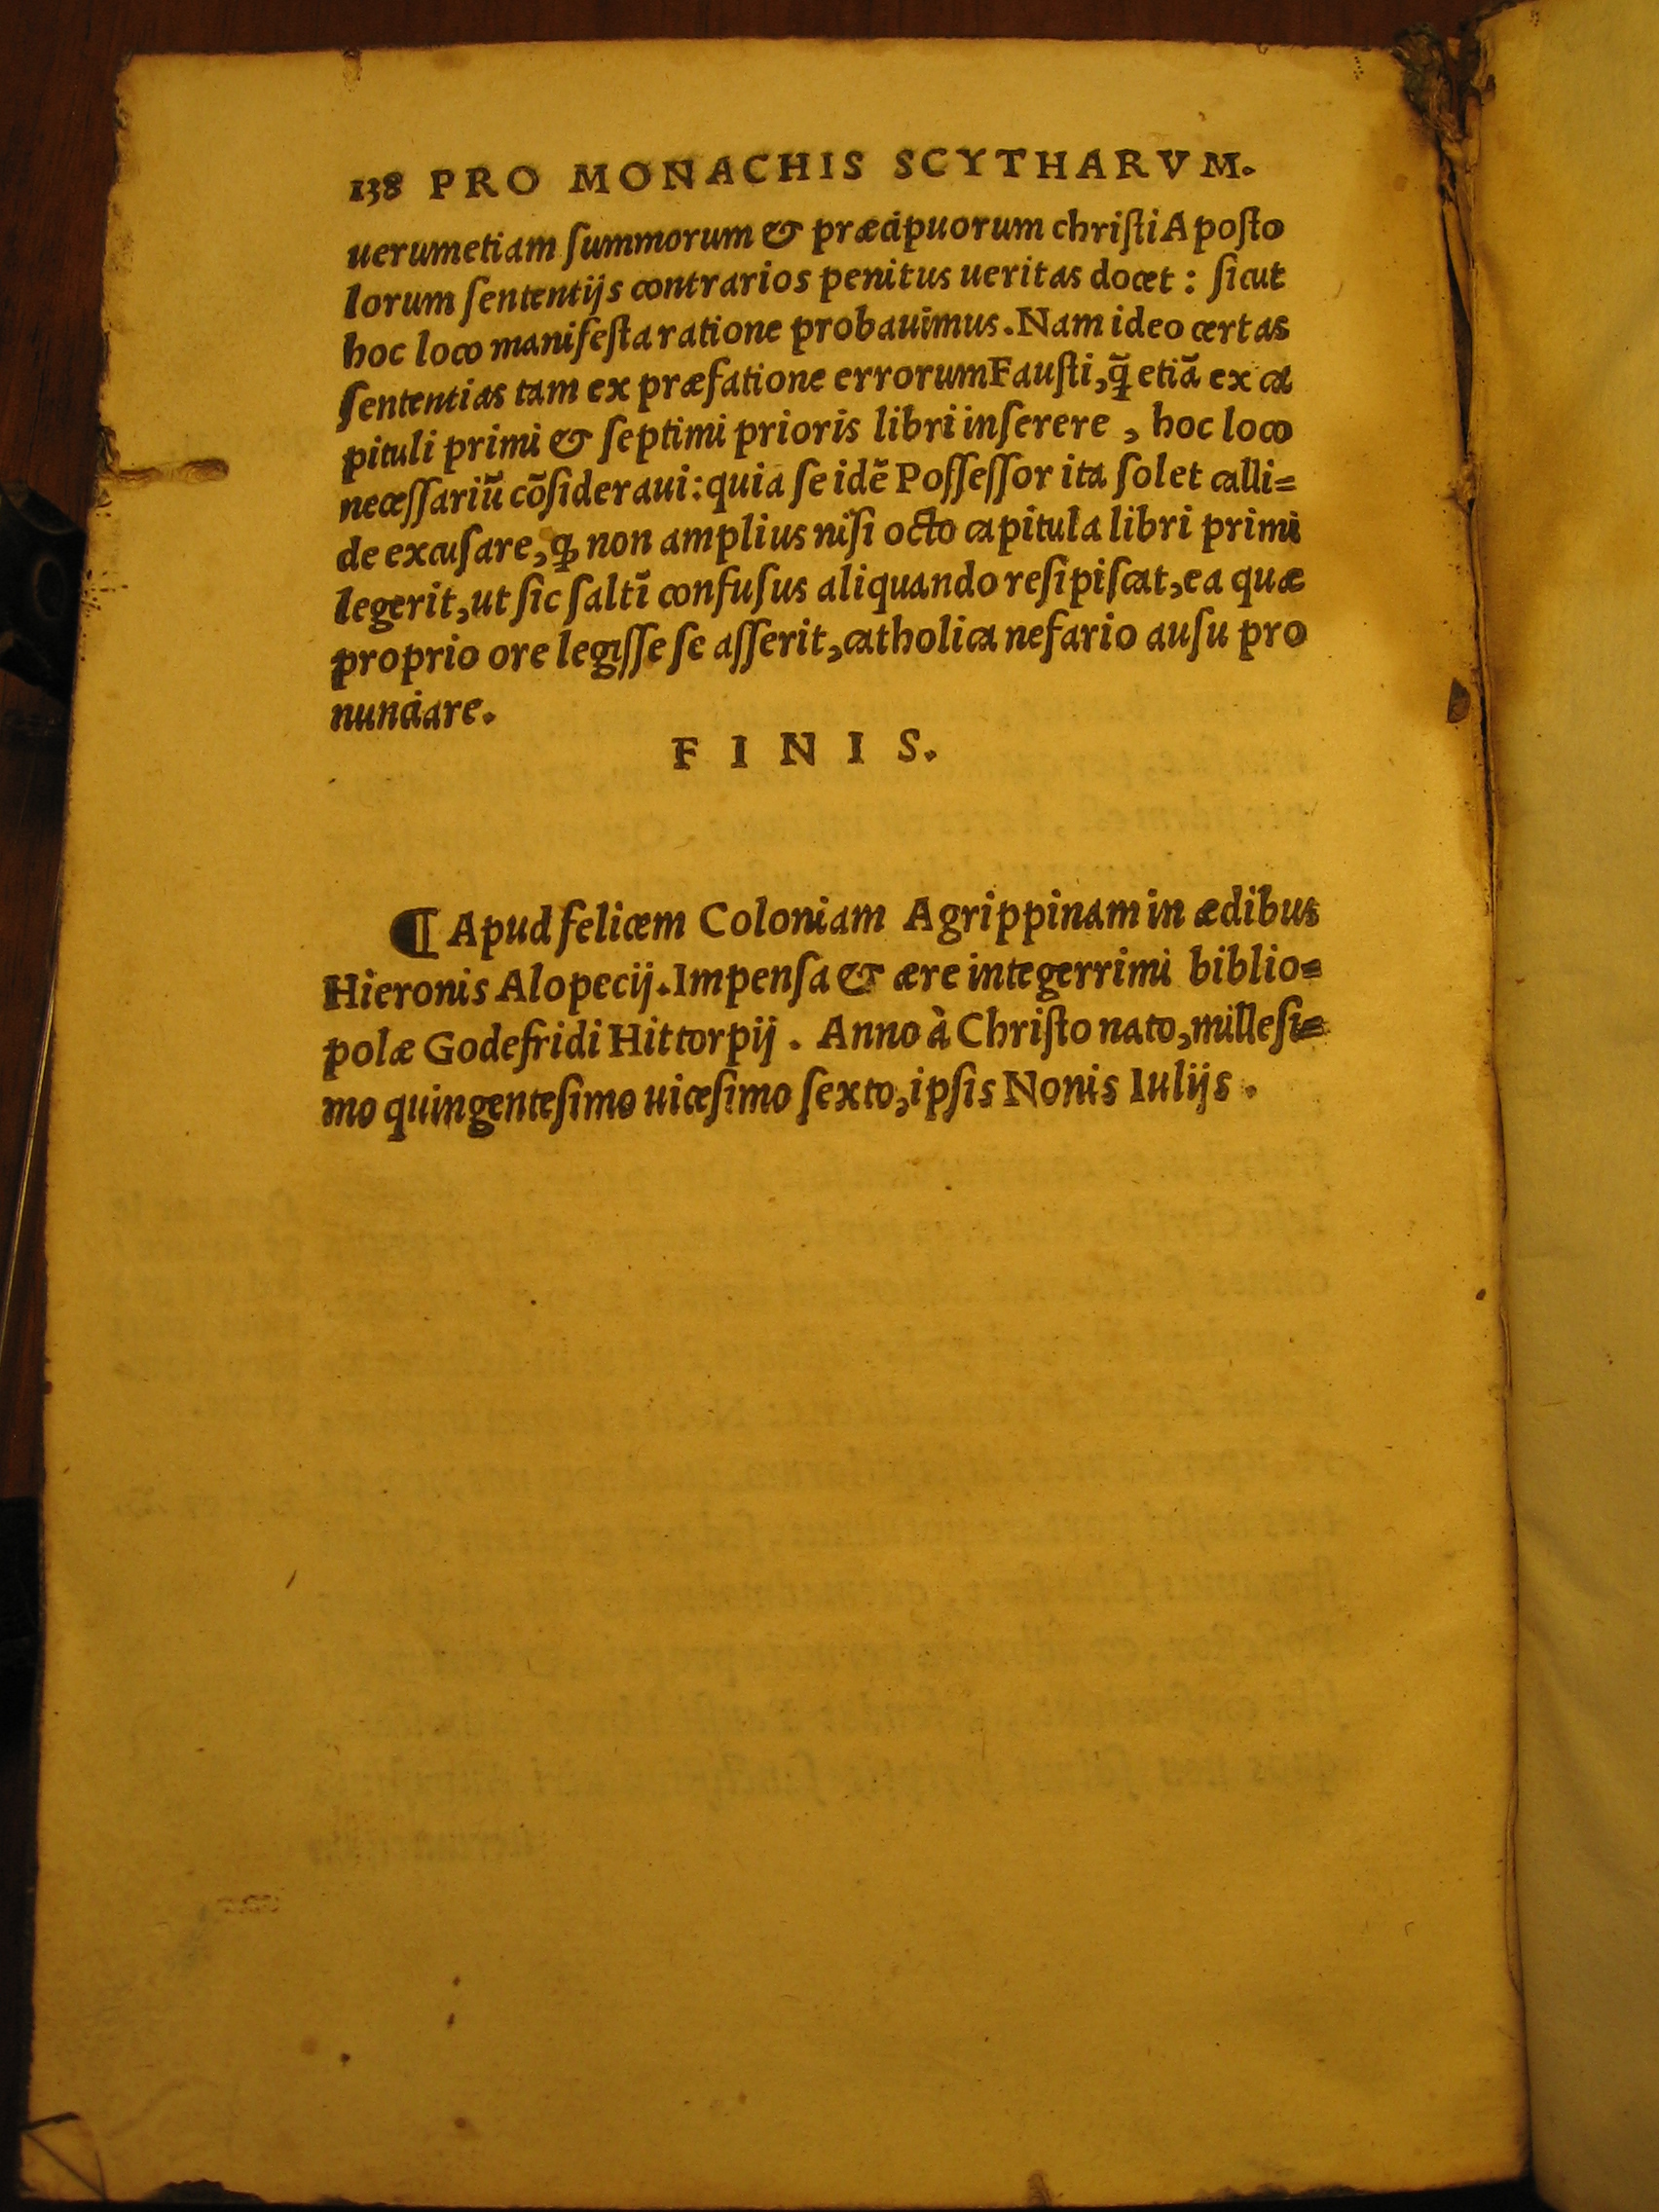 138 PRO MONACHIS SCYTHARVM.
uerumetiam ſummorum & præcipuorum chriſti Apoſto
lorum ſententijs contrarios penitus ueritas docet : ſicut
hoc loco manifeſta ratione probauimus. Nam ideo certas
ſententias tam ex præfatione errorum Fauſti, q̃ etiã ex ca
pituli primi & ſeptimi prioris libri inſerere , hoc loco
neceſſariũ cõſideraui: quia ſe idẽ Poſſeſſor ita ſolet calli=
de excuſare, ꝙ non amplius niſi octo capitula libri primi
legerit, ut ſic ſaltĩ confuſus aliquando reſipiſcat, ea quæ
proprio ore legiſſe ſe aſſerit, catholica nefario auſu pro
nunciare.
F I N I S.
¶ Apud felicem Coloniam Agrippinam in ædibus
Hieronis Alopecij. Impenſa & ære integerrimi biblio=
polæ Godefridi Hittorpij . Anno à Chriſto nato, milleſi=
mo quingenteſimo uiceſimo ſexto, ipſis Nonis Iulijs .